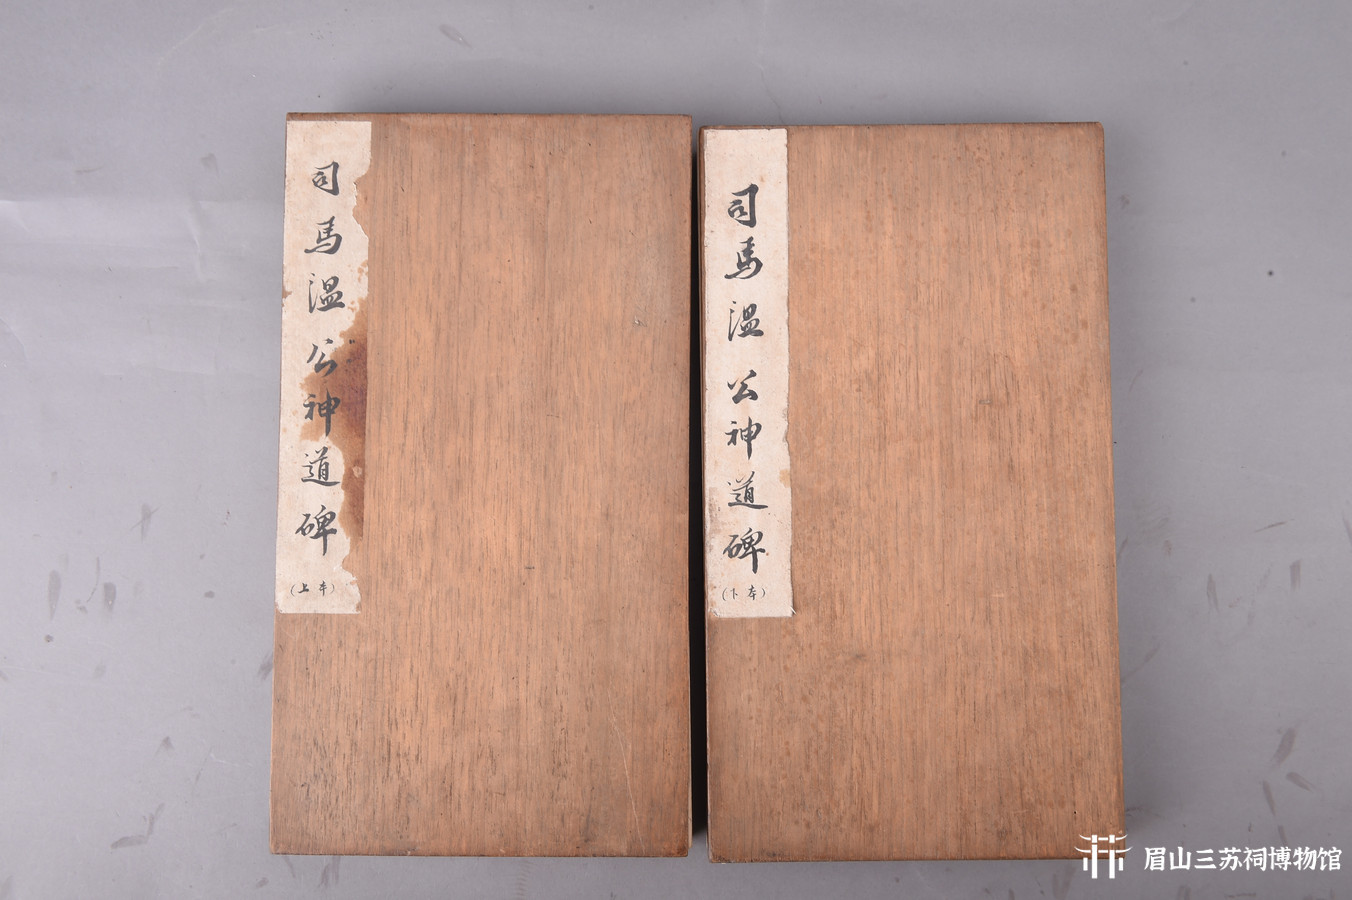 司馬温公神道碑
(上本)
司馬温公神道碑
(下本)
眉山三苏祠博物馆